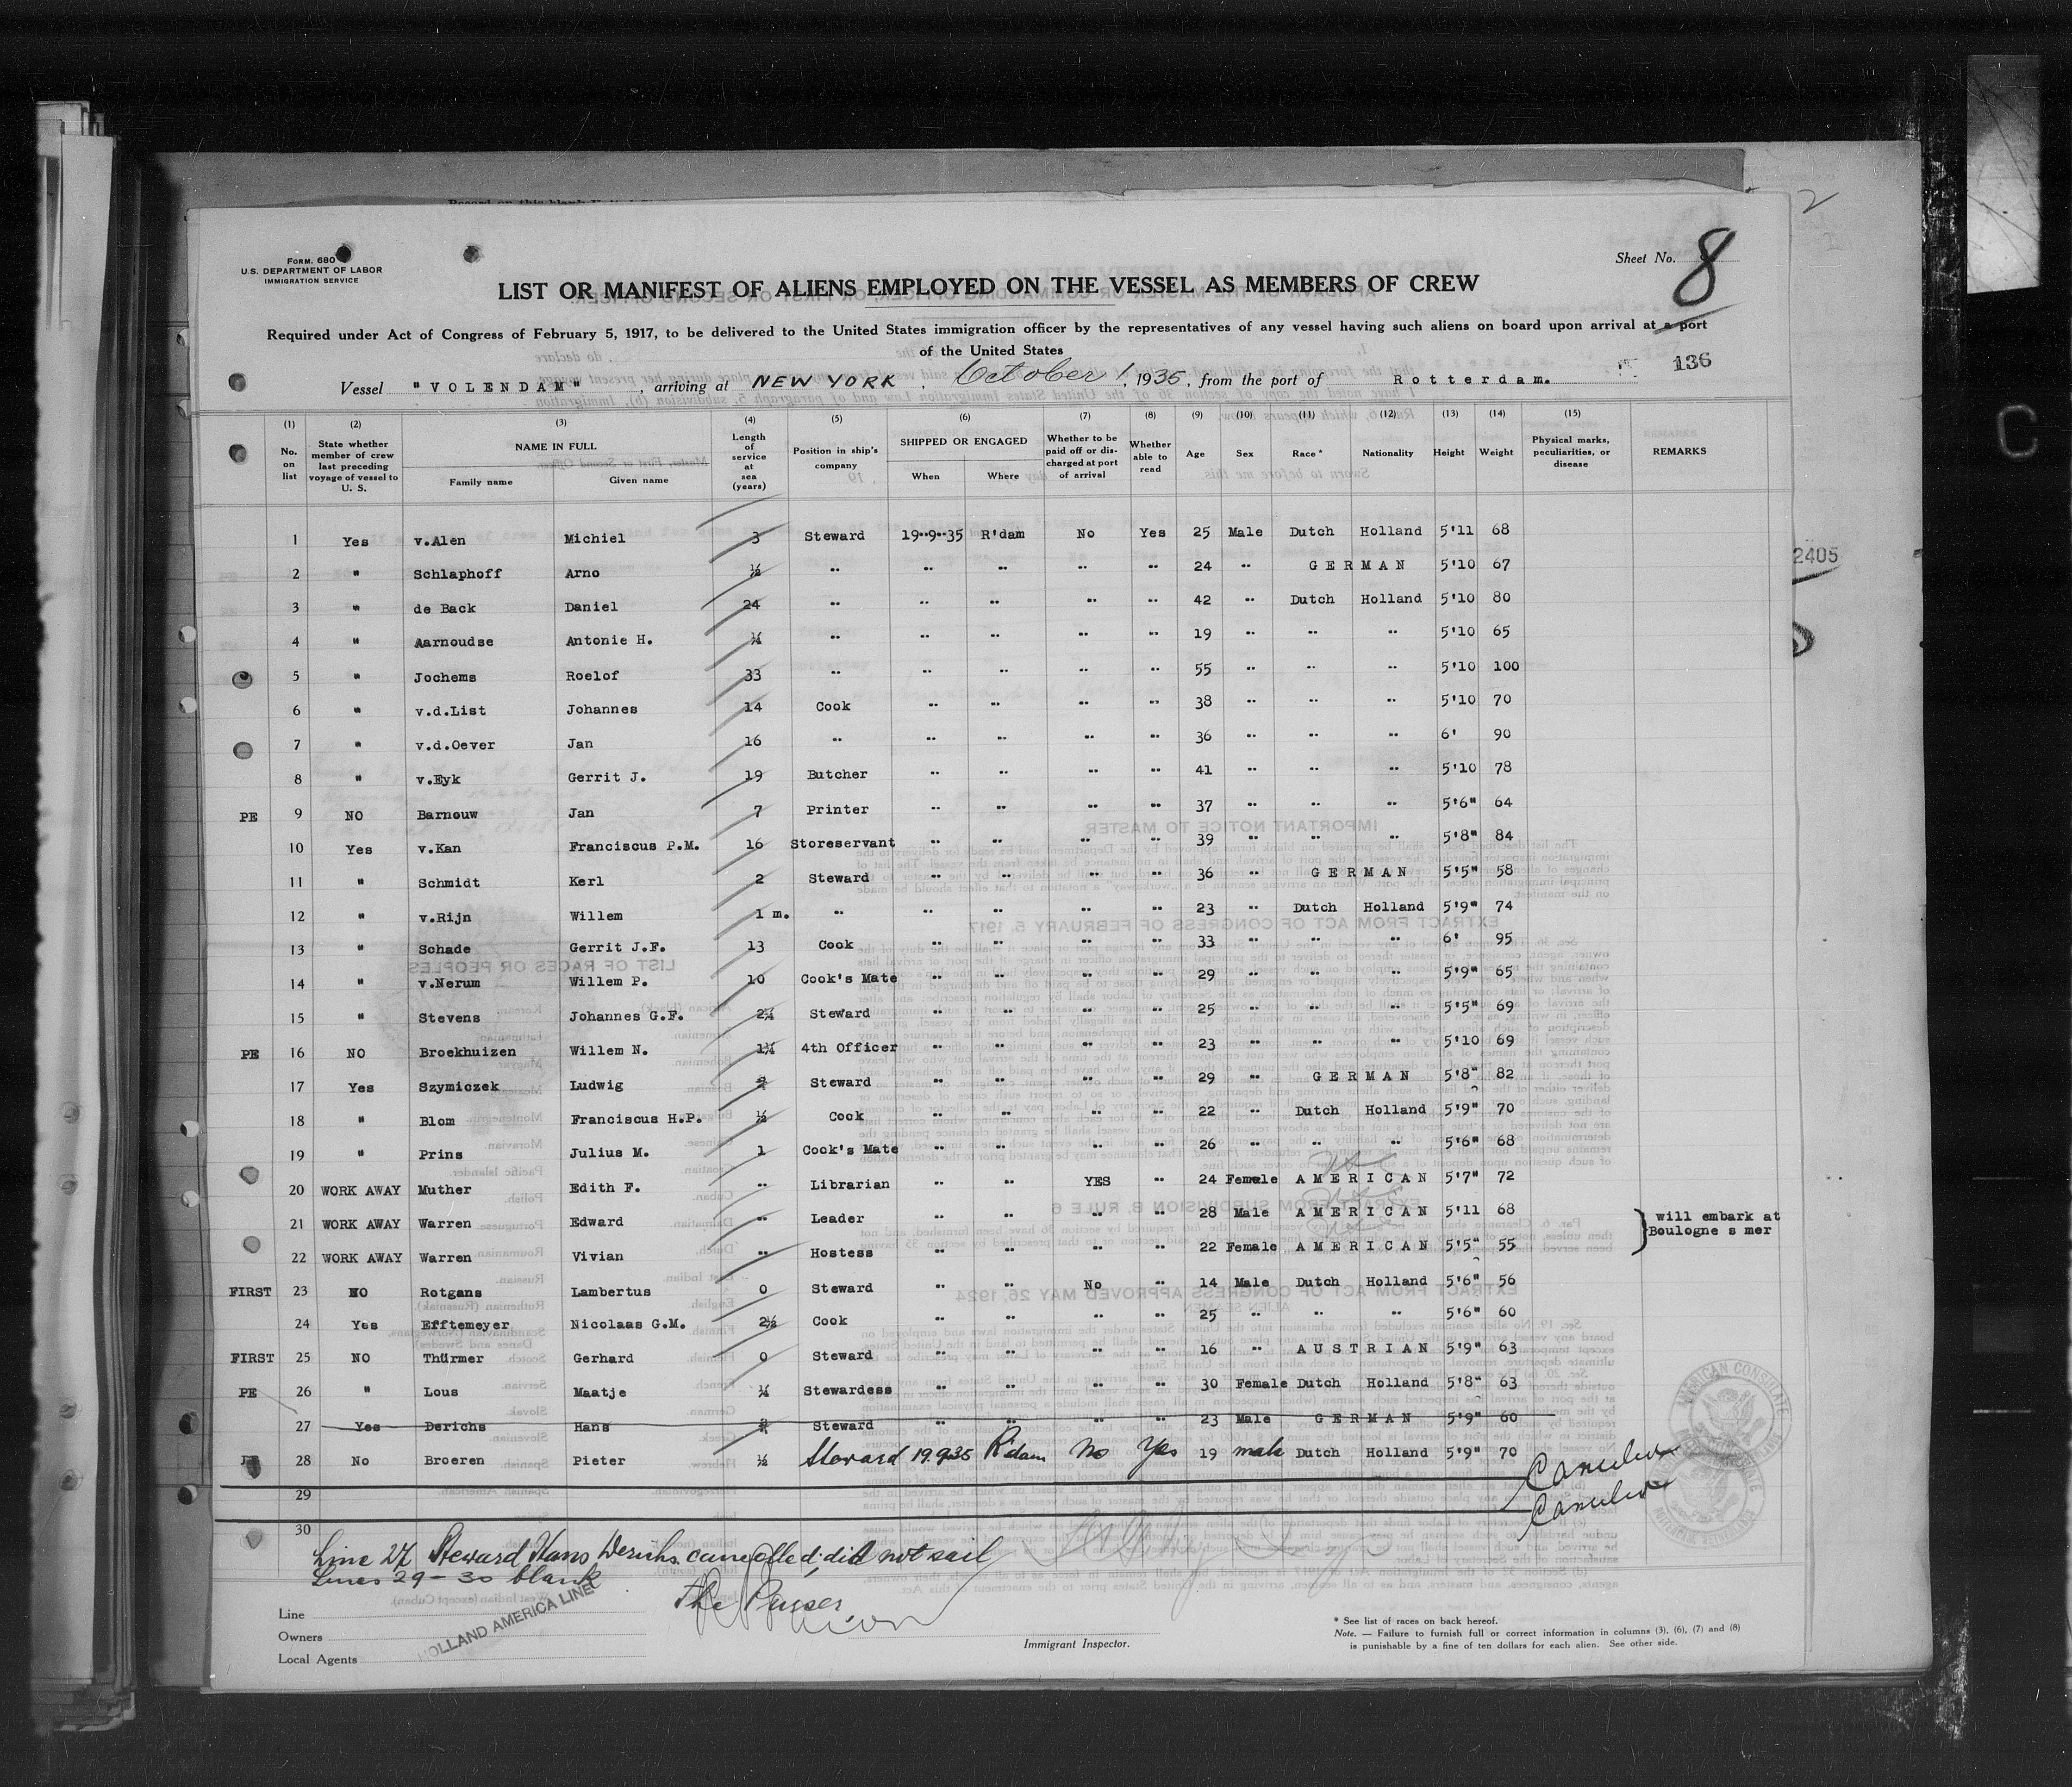 Form. 680
U.S. DEPARTMENT OF LABOR
IMMIGRATION SERVICE
Sheet No. 8
LIST OR MANIFEST OF ALIENS EMPLOYED ON THE VESSEL AS MEMBERS OF CREW
Required under Act of Congress of February 5, 1917, to be delivered to the United States immigration officer by the representatives of any vessel having such aliens on board upon arrival at a port
of the United States
136
Vessel "VOLENDAM", arriving at NEW YORK, October 1, 1935, from the port of Rotterdam.
(1) No. on list (2) State whether member of crew last preceding voyage of vessel to U. S. (3) NAME IN FULL Family name Given name (4) Length of service at sea (years) (5) Position in ship's company (6) SHIPPED OR ENGAGED When Where (7) Whether to be paid off or discharged at port of arrival (8) Whether able to read (9) Age (10) Sex (11) Race * (12) Nationality (13) Height (14) Weight (15) Physical marks, peculiarities, or disease REMARKS
1 Yes v.Alen Michiel 3 Steward 19-9-35 R'dam No Yes 25 Male Dutch Holland 5'11 68
2 " Schlaphoff Arno ½ " " " " " 24 " GERMAN 5'10 67
3 " de Back Daniel 24 " " " " " 42 " Dutch Holland 5'10 80
4 " Aarnoudse Antonie H. " " " " " 19 " " " 5'10 65
5 " Jochems Roelof 33 " " " " " 55 " " " 5'10 100
6 " v.d.List Johannes 14 Cook " " " " 38 " " " 5'10 70
7 " v.d.Oever Jan 16 " " " " " 36 " " " 6' 90
8 " v.Eyk Gerrit J. 19 Butcher " " " " 41 " " " 5'10 78
PE 9 NO Barnouw Jan 7 Printer " " " " 37 " " " 5'6" 64
10 Yes v.Kan Franciscus P.M. 16 Storeservant " " " " 39 " " " 5'8" 84
11 " Schmidt Kerl 2 Steward " " " " 36 " GERMAN 5'5" 58
12 " v.Rijn Willem 1 m. " " " " " 23 " Dutch Holland 5'9" 74
13 " Schade Gerrit J.F. 13 Cook " " " " 33 " " " 6' 95
14 " v.Nerum Willem P. 10 Cook's Mate " " " " 29 " " " 5'9" 65
15 " Stevens Johannes G.F. Steward " " " " 25 " " " 5'5" 69
PE 16 NO Broekhuizen Willem N. 4th Officer " " " " 23 " " " 5'10 69
17 Yes Szymiczek Ludwig Steward " " " " 29 " GERMAN 5'8" 82
18 " Blom Franciscus H.P. ½ Cook " " " " 22 " Dutch Holland 5'9" 70
19 " Prins Julius M. 1 Cook's Mate " " " " 26 " " " 5'6" 68
20 WORK AWAY Muther Edith F. " Librarian " " YES " 24 Female AMERICAN 5'7" 72
21 WORK AWAY Warren Edward " Leader " " " " 28 Male AMERICAN 5'11 68
22 WORK AWAY Warren Vivian " Hostess " " " " 22 Female AMERICAN 5'5" 55
will embark at
Boulogne s mer
FIRST 23 NO Rotgans Lambertus 0 Steward " " No " 14 Male Dutch Holland 5'6" 56
24 Yes Efftemeyer Nicolaas G.M. 2½ Cook " " " " 25 " " " 5'6" 60
FIRST 25 NO Thürmer Gerhard 0 Steward " " " " 16 " AUSTRIAN 5'9" 63
PE 26 " Lous Maatje Stewardess " " " " 30 Female Dutch Holland 5'8" 63
27 Yes Derichs Hans Steward " " " " 23 Male GERMAN 5'9" 60
28 No Broeren Pieter ½ Steward 19.9.35 R'dam No Yes 19 male Dutch Holland 5'9" 70
29
30
Line 27 Steward Hans Derichs cancelled; did not sail
Lines 29-30 blank
The Purser,
Line
Owners
Local Agents
HOLLAND AMERICA LINE
Immigrant Inspector.
* See list of races on back hereof.
Note. — Failure to furnish full or correct information in columns (3), (6), (7) and (8)
is punishable by a fine of ten dollars for each alien. See other side.
2405
AMERICAN CONSULATE